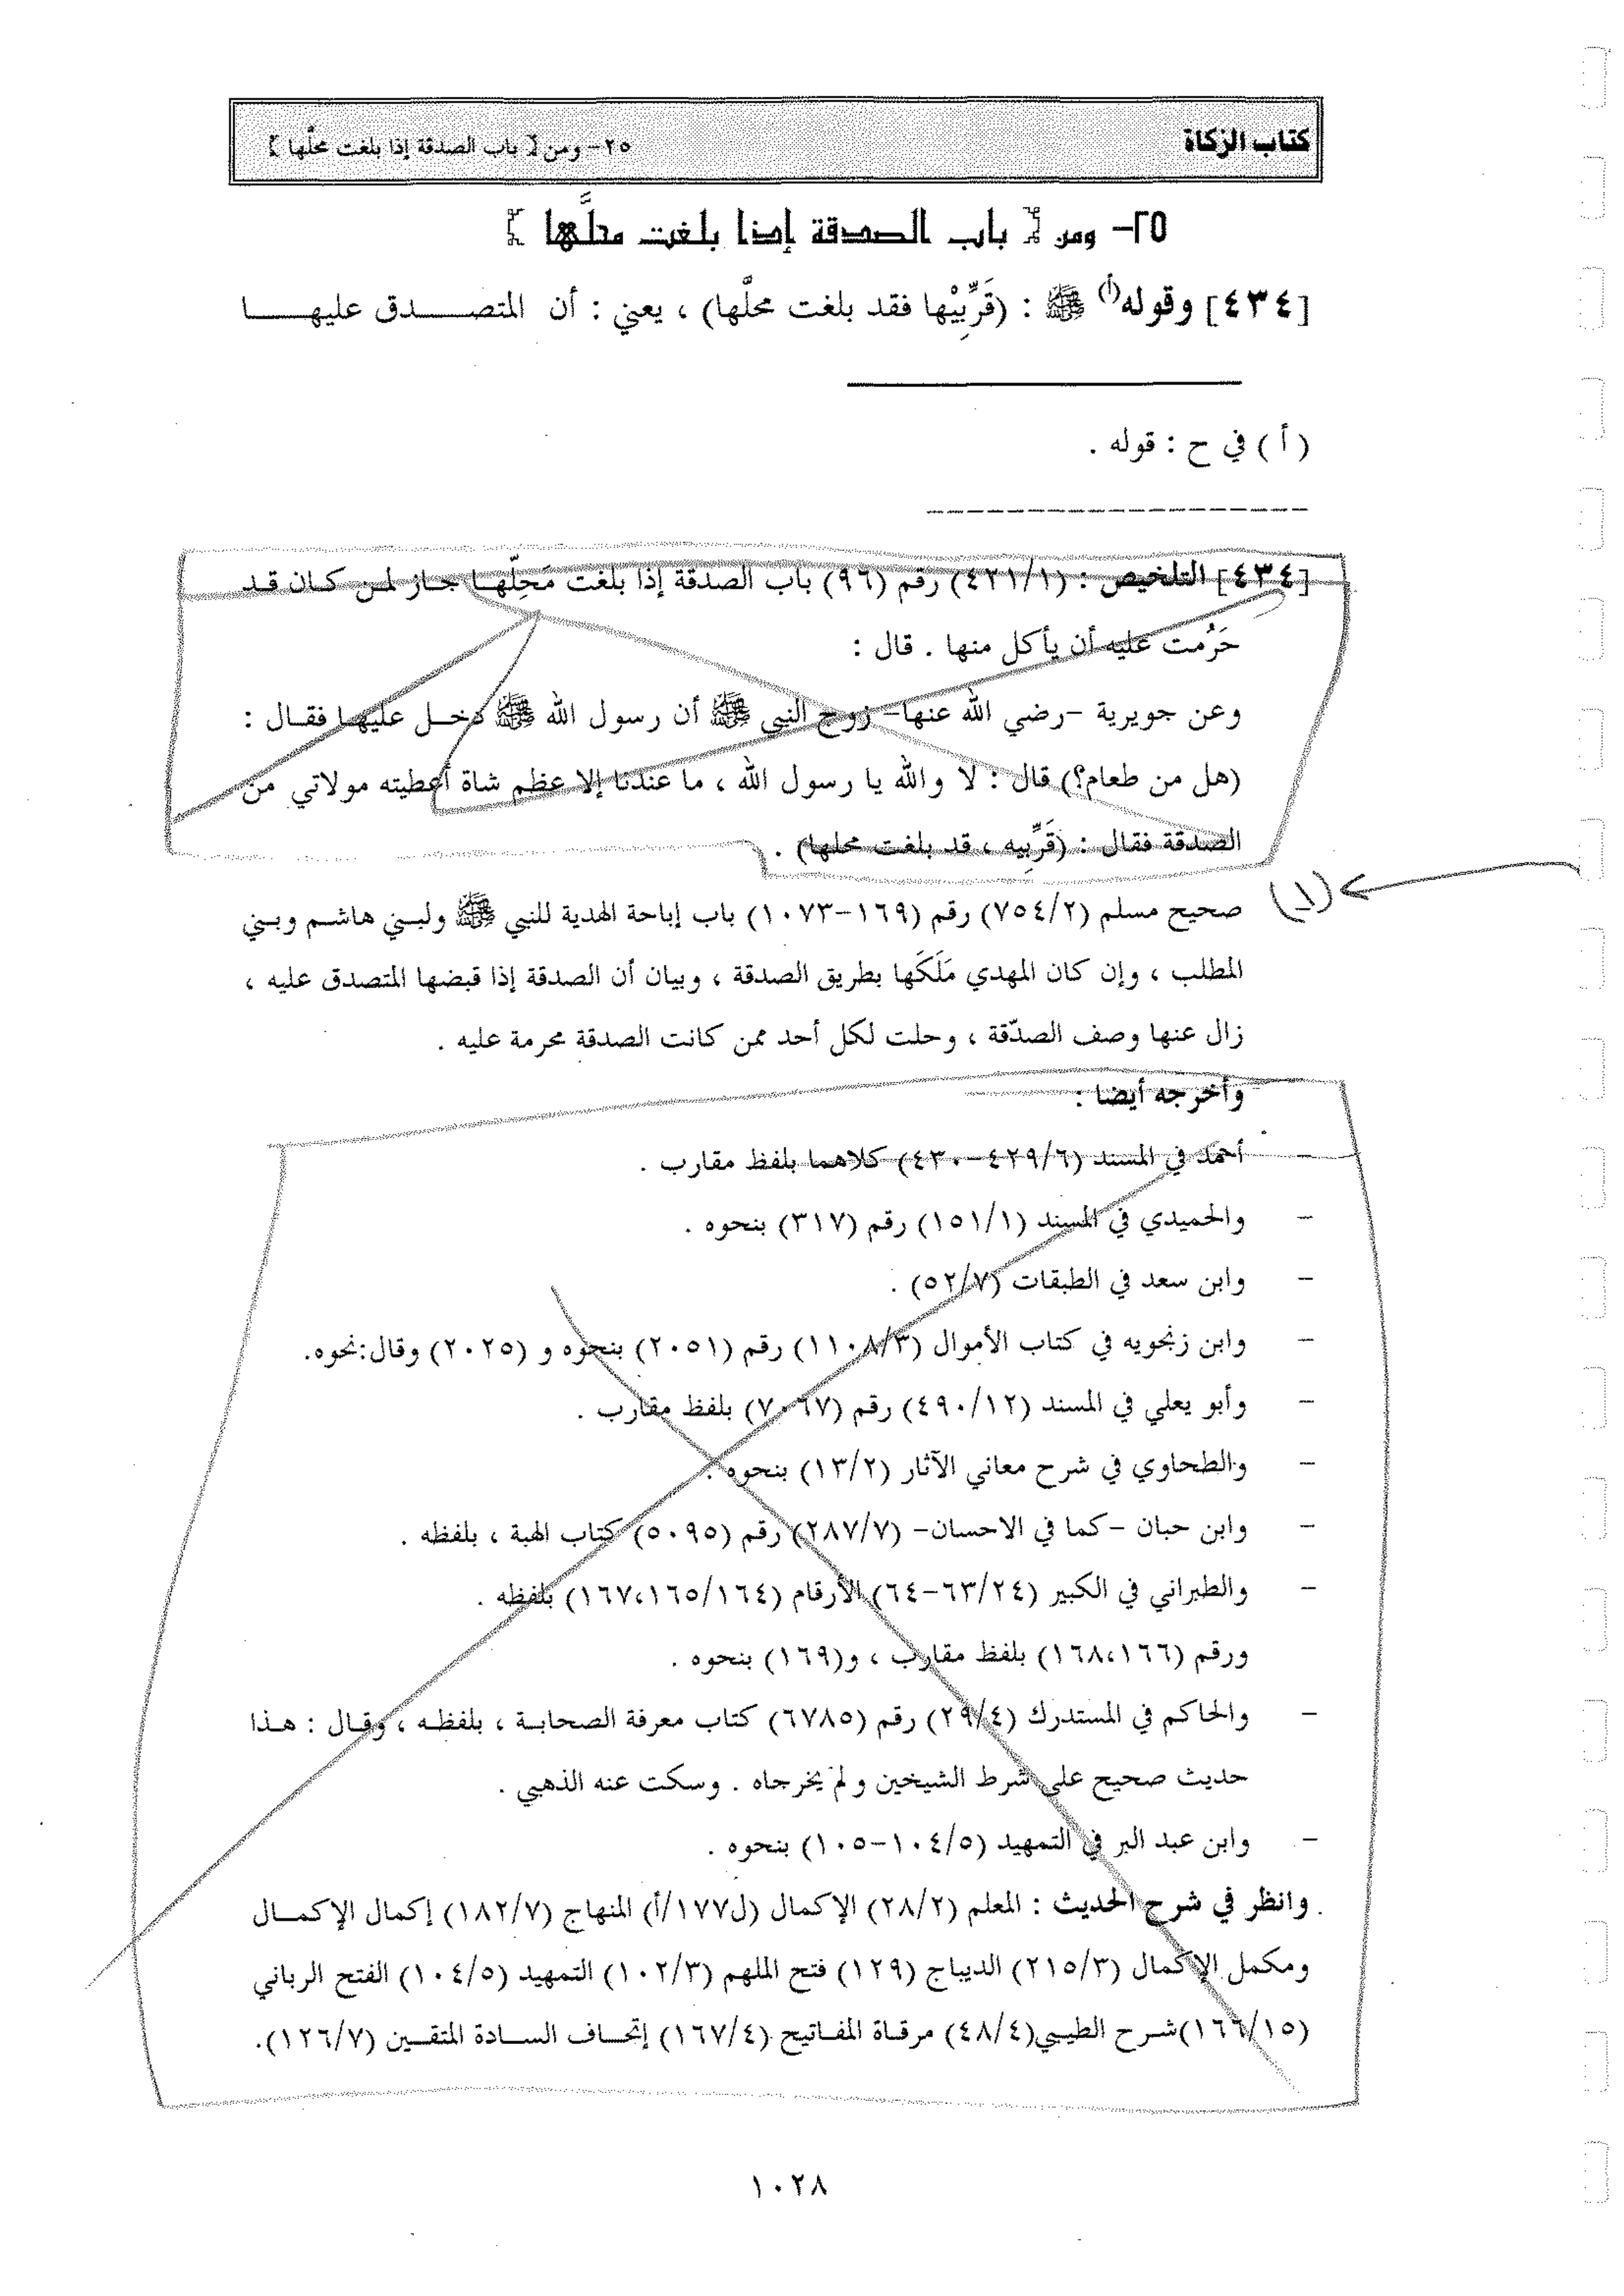 كتاب الزكاة
٢٥- ومن [ باب الصدقة إذا بلغت محلّها ]
٢٥- ومن [ باب الصدقة إذا بلغت محلَّها ]
[٤٣٤] وقوله(أ) ﷺ : (قَرِّبِيْها فقد بلغت محلّها) ، يعني : أن المتصدق عليها
(أ) في ح : قوله .
[٤٣٤] التلخيص : (٤٢١/١) رقم (٩٦) باب الصدقة إذا بلغت مَحِلّها جاز لمن كان قد
حَرُمت عليه أن يأكل منها . قال :
وعن جويرية -رضي الله عنها- زوج النبي ﷺ أن رسول الله ﷺ دخل عليها فقال :
(هل من طعام؟) قال : لا والله يا رسول الله ، ما عندنا إلا عظم شاة أعطيته مولاتي من
الصدقة فقال : (قَرِّبِيه ، قد بلغت محلها) .
(١)
صحيح مسلم (٧٥٤/٢) رقم (١٦٩-١٠٧٣) باب إباحة الهدية للنبي ﷺ ولبني هاشم وبني
المطلب ، وإن كان المهدي مَلَكَها بطريق الصدقة ، وبيان أن الصدقة إذا قبضها المتصدق عليه ،
زال عنها وصف الصدّقة ، وحلت لكل أحد ممن كانت الصدقة محرمة عليه .
وأخرجه أيضا :
- أحمد في المسند (٤٢٩/٦-٤٣٠) كلاهما بلفظ مقارب .
- والحميدي في المسند (١٥١/١) رقم (٣١٧) بنحوه .
- وابن سعد في الطبقات (٥٢/٧) .
- وابن زنجويه في كتاب الأموال (١١٠٨/٣) رقم (٢٠٥١) بنحوه و (٢٠٢٥) وقال:نحوه.
- وأبو يعلي في المسند (٤٩٠/١٢) رقم (٧٠٦٧) بلفظ مقارب .
- والطحاوي في شرح معاني الآثار (١٣/٢) بنحوه .
- وابن حبان -كما في الاحسان- (٢٨٧/٧) رقم (٥٠٩٥) كتاب الهبة ، بلفظه .
- والطبراني في الكبير (٦٣/٢٤-٦٤) الأرقام (١٦٧،١٦٥/١٦٤) بلفظه .
ورقم (١٦٨،١٦٦) بلفظ مقارب ، و(١٦٩) بنحوه .
- والحاكم في المستدرك (٢٩/٤) رقم (٦٧٨٥) كتاب معرفة الصحابة ، بلفظه ، وقال : هذا
حديث صحيح على شرط الشيخين ولم يخرجاه . وسكت عنه الذهبي .
- وابن عبد البر في التمهيد (١٠٤/٥-١٠٥) بنحوه .
وانظر في شرح الحديث : المعلم (٢٨/٢) الإكمال (ل١٧٧/أ) المنهاج (١٨٢/٧) إكمال الإكمال
ومكمل الإكمال (٢١٥/٣) الديباج (١٢٩) فتح الملهم (١٠٢/٣) التمهيد (١٠٤/٥) الفتح الرباني
(١٦٦/١٥)شرح الطيبي(٤٨/٤) مرقاة المفاتيح (١٦٧/٤) إتحاف السادة المتقين (١٢٦/٧).
١٠٢٨